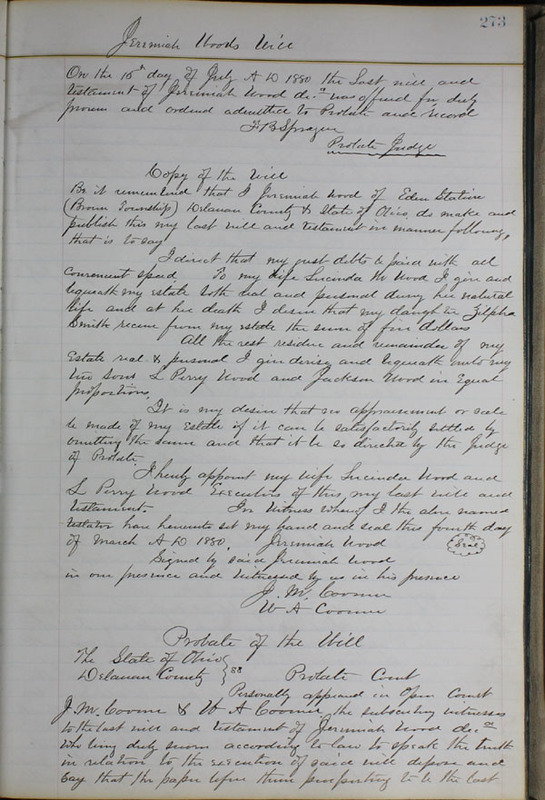 273
Jeremiah Woods Will
On the 15th day of July A D 1880 the Last will and
testament of Jeremiah Wood decd was offered for duly
proven and ordered admitted to Probate and record
F B Sprague
Probate Judge
Copy of the Will
Be it remembered that I Jeremiah Wood of Eden Station
(Brown Township) Delaware County & State of Ohio do make and
publish this my last will and testament in manner following,
that is to say
I direct that my just debts be paid with all
Convenient speed To my wife Lucinda M Wood I give and
bequeath my estate both real and personal during her natural
life and at her death I desire that my daughter Zilpha
Smith receive from my estate the sum of five dollars
All the rest residue and remainder of my
Estate real & personal I give devise and bequeath unto my
two sons L Perry Wood and Jackson Wood in Equal
proportions,
It is my desire that no appraisement or sale
be made of my Estate if it can be satisfactorily settled by
omitting the same and that it be so directed by the Judge
of Probate.
I hereby appoint my wife Lucinda Wood and
L Perry Wood Executors of this, my last will and
testament. In Witness Whereof I the above named
testator have hereunto set my hand and seal this fourth day
of March A D 1880. Jeremiah Wood Seal
Signed by said Jeremiah Wood
in our presence and witnessed by us in his presence
J. M. Coomer
W A Coomer
Probate of the Will
The State of Ohio
Delaware County } ss Probate Court
Personally appeared in Open Court
J. M. Coomer & W A Coomer, the subscribing witnesses
to the last will and testament of Jeremiah Wood decd
who being duly sworn according to law to speak the truth
in relation to the execution of said will depose and
say that the paper before them purporting to be the last